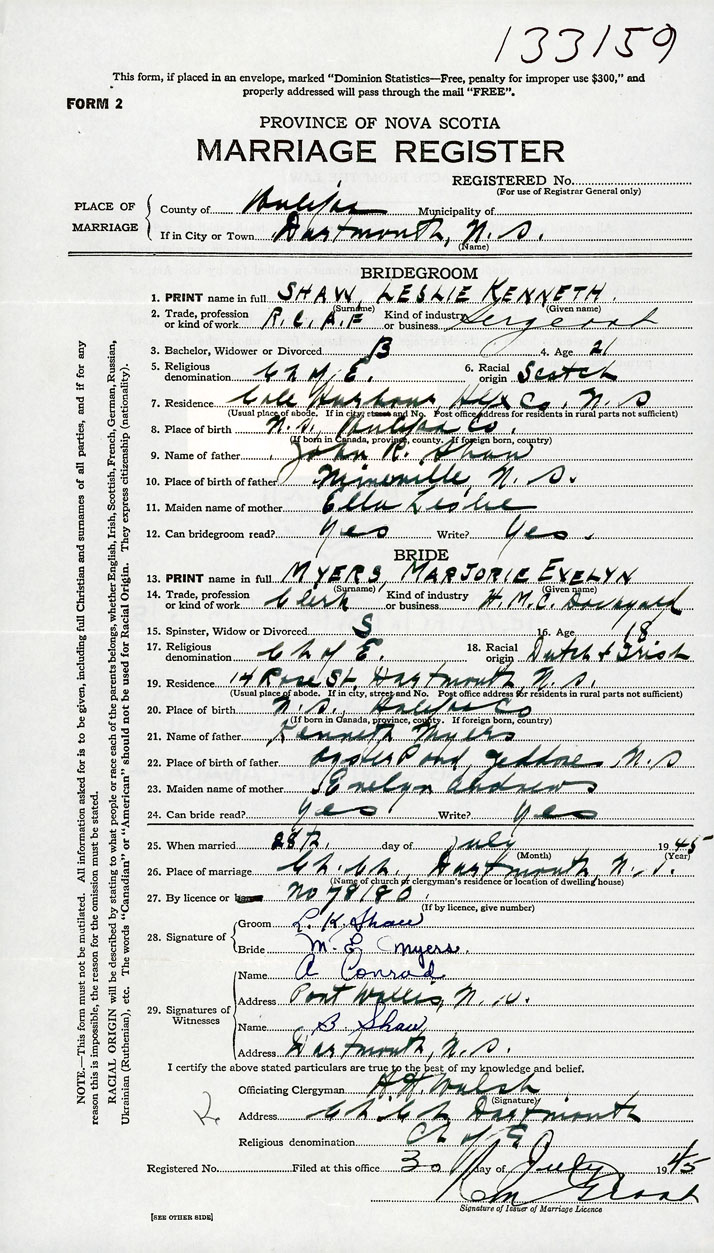 133159
This form, if placed in an envelope, marked "Dominion Statistics—Free, penalty for improper use $300," and
properly addressed will pass through the mail "FREE".
FORM 2
PROVINCE OF NOVA SCOTIA
MARRIAGE REGISTER
REGISTERED No.
(For use of Registrar General only)
PLACE OF MARRIAGE
County of Halifax Municipality of
If in City or Town Dartmouth, N. S.
(Name)
BRIDEGROOM
1. PRINT name in full SHAW, LESLIE KENNETH
(Surname) (Given name)
2. Trade, profession or kind of work R.C.A.F Kind of industry or business Sergeant
3. Bachelor, Widower or Divorced B 4. Age 21
5. Religious denomination Ch of E. 6. Racial origin Scotch
7. Residence Cole Harbour, Hfx Co. N. S
(Usual place of abode. If in city, street and No. Post office address for residents in rural parts not sufficient)
8. Place of birth N.S. Halifax Co.
(If born in Canada, province, county. If foreign born, country)
9. Name of father John R. Shaw
10. Place of birth of father Mineville, N. S.
11. Maiden name of mother Ella Leslie
12. Can bridegroom read? Yes Write? Yes.
BRIDE
13. PRINT name in full MYERS, MARJORIE EVELYN
(Surname) (Given name)
14. Trade, profession or kind of work Clerk Kind of industry or business H.M.C. Dockyard
15. Spinster, Widow or Divorced S 16. Age 18
17. Religious denomination Ch of E. 18. Racial origin Dutch & Irish
19. Residence 14 Rose St. Dartmouth, N. S.
(Usual place of abode. If in city, street and No. Post office address for residents in rural parts not sufficient)
20. Place of birth N. S., Halifax Co
(If born in Canada, province, county. If foreign born, country)
21. Name of father Kenneth Myers
22. Place of birth of father Oyster Pond, Jeddore N. S
23. Maiden name of mother Evelyn Andrews
24. Can bride read? Yes Write? Yes
25. When married 28th day of July 1945
(Month) (Year)
26. Place of marriage Ch. Ch. Dartmouth, N. S.
(Name of church or clergyman's residence or location of dwelling house)
27. By licence or No 78180
(If by licence, give number)
28. Signature of Groom L. K. Shaw
Bride M. E. Myers.
29. Signatures of Witnesses
Name A Conrad
Address Port Wallis, N. S.
Name B. Shaw
Address Dartmouth, N. S.
I certify the above stated particulars are true to the best of my knowledge and belief.
Officiating Clergyman H. H. Walsh
(Signature)
Address Ch. Ch. Dartmouth
Religious denomination Ch of E
Registered No. Filed at this office 30 day of July 1945
Signature of Issuer of Marriage Licence
[SEE OTHER SIDE]
NOTE.—This form must not be mutilated. All information asked for is to be given, including full Christian and surnames of all parties, and if for any
reason this is impossible, the reason for the omission must be stated.
RACIAL ORIGIN will be described by stating to what people or race each of the parents belongs, whether English, Irish, Scottish, French, German, Russian,
Ukrainian (Ruthenian), etc. The words "Canadian" or "American" should not be used for Racial Origin. They express citizenship (nationality).